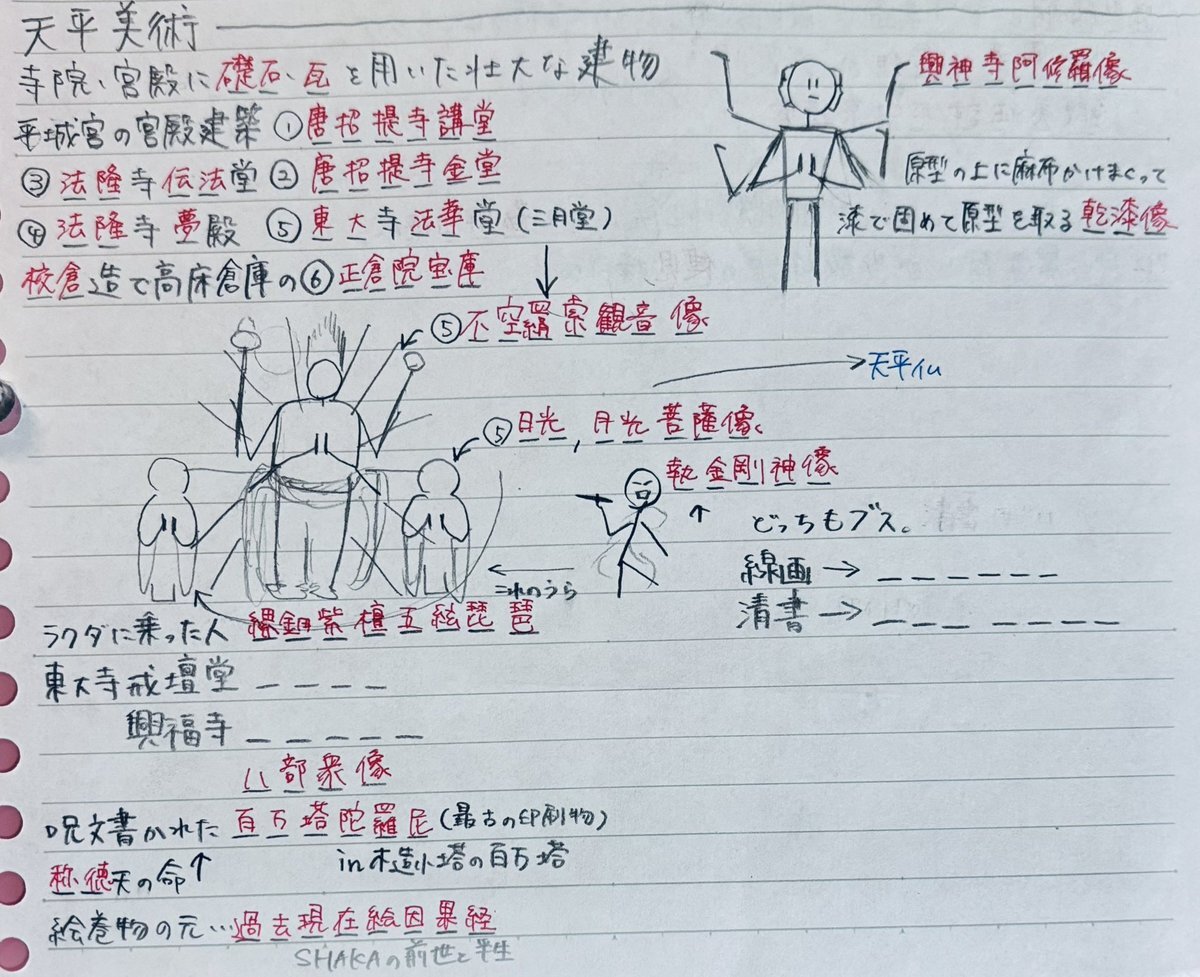 天平美術
寺院、宮殿に礎石、瓦を用いた壮大な建物
平城宮の宮殿建築 ①唐招提寺講堂
③法隆寺伝法堂 ②唐招提寺金堂
④法隆寺夢殿 ⑤東大寺法華堂(三月堂)
校倉造で高床倉庫の⑥正倉院宝庫
興神寺阿修羅像
原型の上に麻布かけまくって
漆で固めて原型を取る乾漆像
⑤不空羂索観音像
天平仏
⑤日光,月光菩薩像
執金剛神像
↑ どっちもブス。
これのうら
線画→ _ _ _ _ _ _
清書→ _ _ _ _ _ _ _
ラクダに乗った人 螺鈿紫檀五絃琵琶
東大寺戒壇堂 _ _ _ _
興福寺 _ _ _ _ _
八部衆像
呪文書かれた 百万塔陀羅尼(最古の印刷物)
称徳天の命↑ in木造小塔の百万塔
絵巻物の元…過去現在絵因果経
SHAKAの前世と半生